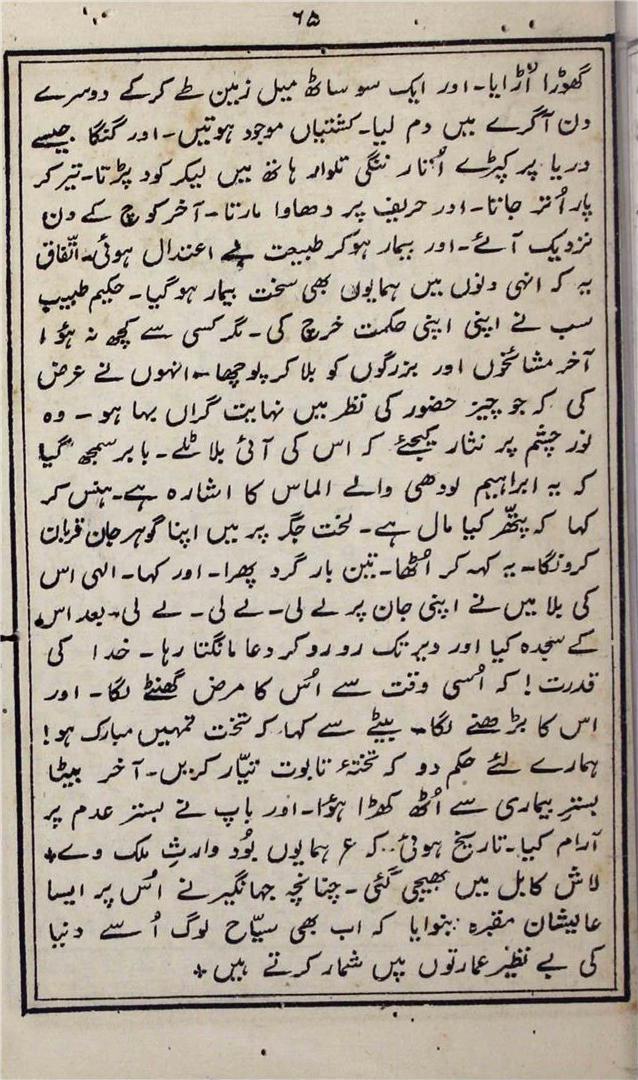 ۶۵
گھوڑا اُڑایا۔ اور ایک سو ساٹھ میل زمین طے کرکے دوسرے
دن آگرے میں دم لیا۔ کشتیاں موجود ہوتیں۔ اور گنگا جیسے
دریا پر کپڑے اُتار ننگی تلوار ہاتھ میں لیکر کود پڑتا۔ تیر کر
پار اُتر جاتا۔ اور حریف پر دھاوا مارتا۔ آخر کوچ کے دن
نزدیک آئے۔ اور بیمار ہو کر طبیعت بے اعتدال ہوئی۔ اتّفاق
یہ کہ انہی دنوں میں ہمایوں بھی سخت بیمار ہوگیا۔ حکیم طبیب
سب نے اپنی اپنی حکمت خرچ کی۔ مگر کسی سے کچھ نہ ہؤا
آخر مشائخوں اور بزرگوں کو بلا کر پوچھا۔ انہوں نے عرض
کی کہ جو چیز حضور کی نظر میں نہایت گراں بہا ہو۔ وہ
نور چشم پر نثار کیجئے کہ اس کی آئی بلا ٹلے۔ بابر سمجھ گیا
کہ یہ ابراہیم لودھی والے الماس کا اشارہ ہے۔ ہنس کر
کہا کہ پتھّر کیا مال ہے۔ لخت جگر پر میں اپنا گوہر جان قربان
کرونگا۔ یہ کہہ کر اُٹھا۔ تین بار گرد پھرا۔ اور کہا۔ الہی اس
کی بلا میں نے اپنی جان پر لے لی۔ لے لی۔ لے لی۔ بعد اس
کے سجدہ کیا اور دیر تک رو رو کر دعا مانگتا رہا۔ خدا کی
قدرت! کہ اُسی وقت سے اُس کا مرض گھٹنے لگا۔ اور
اس کا بڑھنے لگا۔ بیٹے سے کہا کہ تخت تمہیں مبارک ہو!
ہمارے لئے حکم دو کہ تختۂ تابوت تیّار کریں۔ آخر بیٹا
بسترِ بیماری سے اُٹھ کھڑا ہؤا۔ اور باپ نے بستر عدم پر
آرام کیا۔ تاریخ ہوئی کہ ع ہمایوں بُود وارثِ ملک وے ٭
لاش کابل میں بھیجی گئی۔ چنانچہ جہانگیر نے اُس پر ایسا
عالیشان مقبرہ بنوایا کہ اب بھی سیّاح لوگ اُسے دنیا
کی بے نظیر عمارتوں میں شمار کرتے ہیں ٭